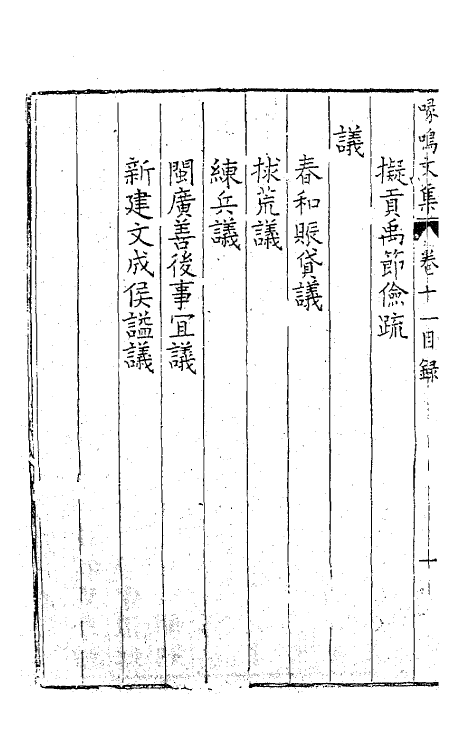 喙鳴文集 卷十一目錄 十
擬貢禹節儉疏
議
春和賑貸議
捄荒議
練兵議
閩廣善後事宜議
新建文成侯謚議